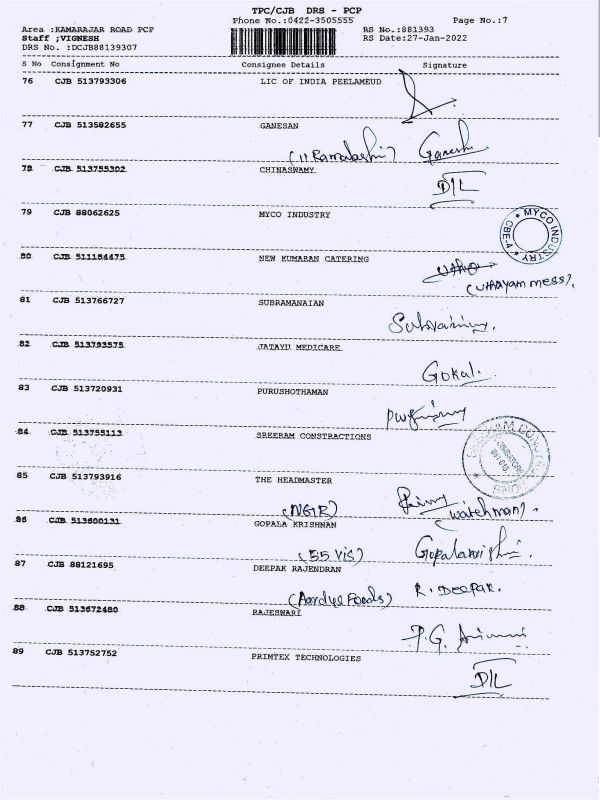 TPC/CJB DRS - PCP
Phone No.:0422-3505555 Page No.:7
Area :KAMARAJAR ROAD PCP RS No.:881393
Staff ;VIGNESH RS Date:27-Jan-2022
DRS No. :DCJB88139307
S No Consignment No Consignee Details Signature
76 CJB 513793306 LIC OF INDIA PEELAMEUD
77 CJB 513582655 GANESAN
Ganesh
78 CJB 513755302 CHINASWAMY
D/L
79 CJB 88062625 MYCO INDUSTRY
MYCO INDUSTRY CBE-4
80 CJB 511184475 NEW KUMARAN CATERING
(Uthayam mess).
81 CJB 513766727 SUBRAMANAIAN
82 CJB 513793575 JATAYU MEDICARE
Gokal.
83 CJB 513720931 PURUSHOTHAMAN
84 CJB 513755113 SREERAM CONSTRACTIONS
85 CJB 513793916 THE HEADMASTER
(NGR) (watchman).
86 CJB 513600131 GOPALA KRISHNAN
(55 Vis)
87 CJB 88121695 DEEPAK RAJENDRAN
R. Deepak.
88 CJB 513672480 RAJESWARI
89 CJB 513752752 PRIMTEX TECHNOLOGIES
D/L